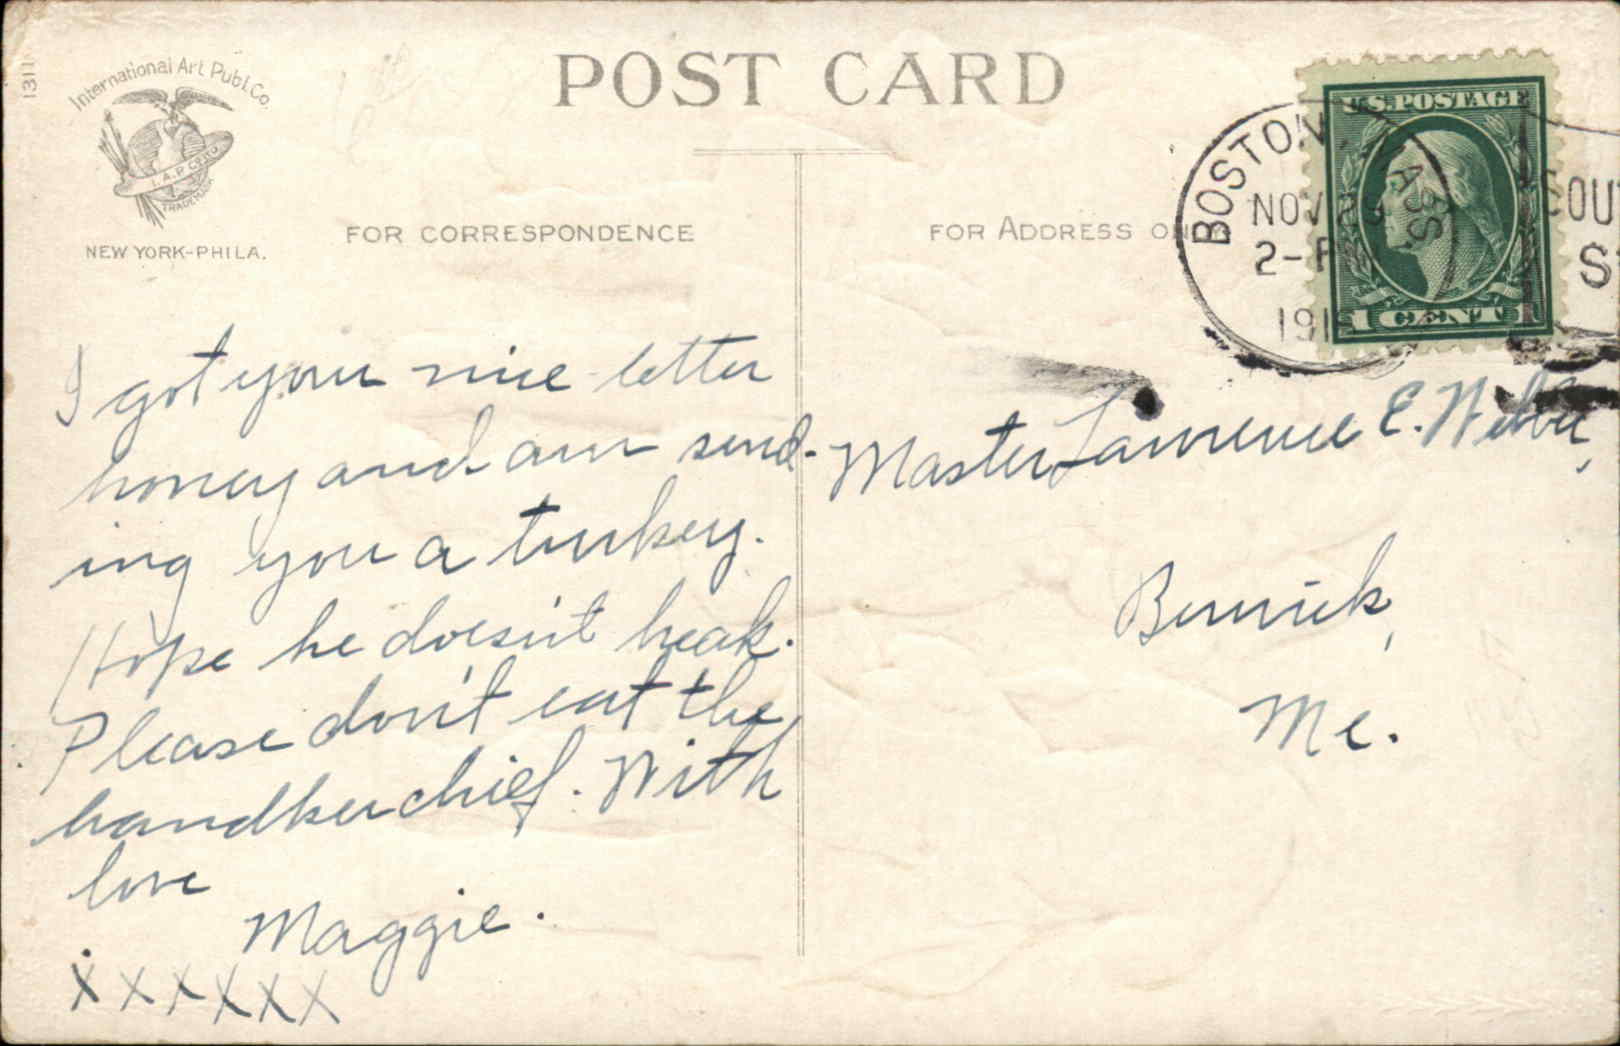 1311
International Art Publ. Co.
I.A.P. Co.
TRADEMARK
NEW YORK-PHILA.
POST CARD
FOR CORRESPONDENCE
FOR ADDRESS
BOSTON, MASS.
NOV
2-P
191
U.S. POSTAGE
1 CENT 1
I got your nice letter
honey and am send-
ing you a turkey.
Hope he doesn't
Please don't eat the
handkerchief. With
love
Maggie.
x x x x x x
Master Lawrence E.
Berwick,
Me.